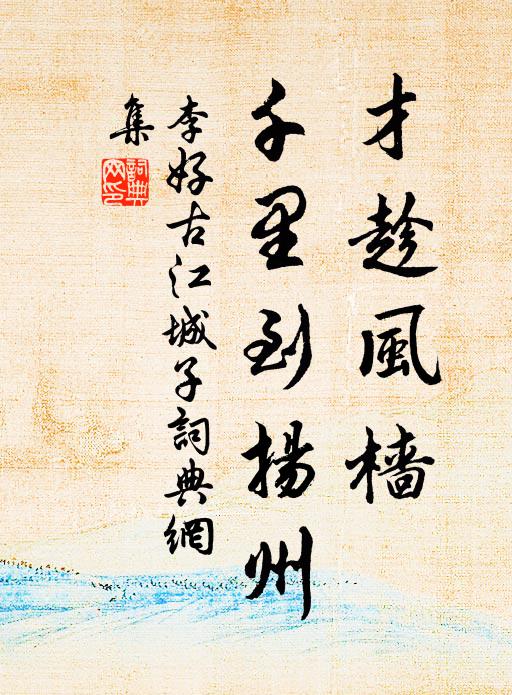 才趁風檣
千里到揚州
李好古江城子詞典網
集
詞典
网印